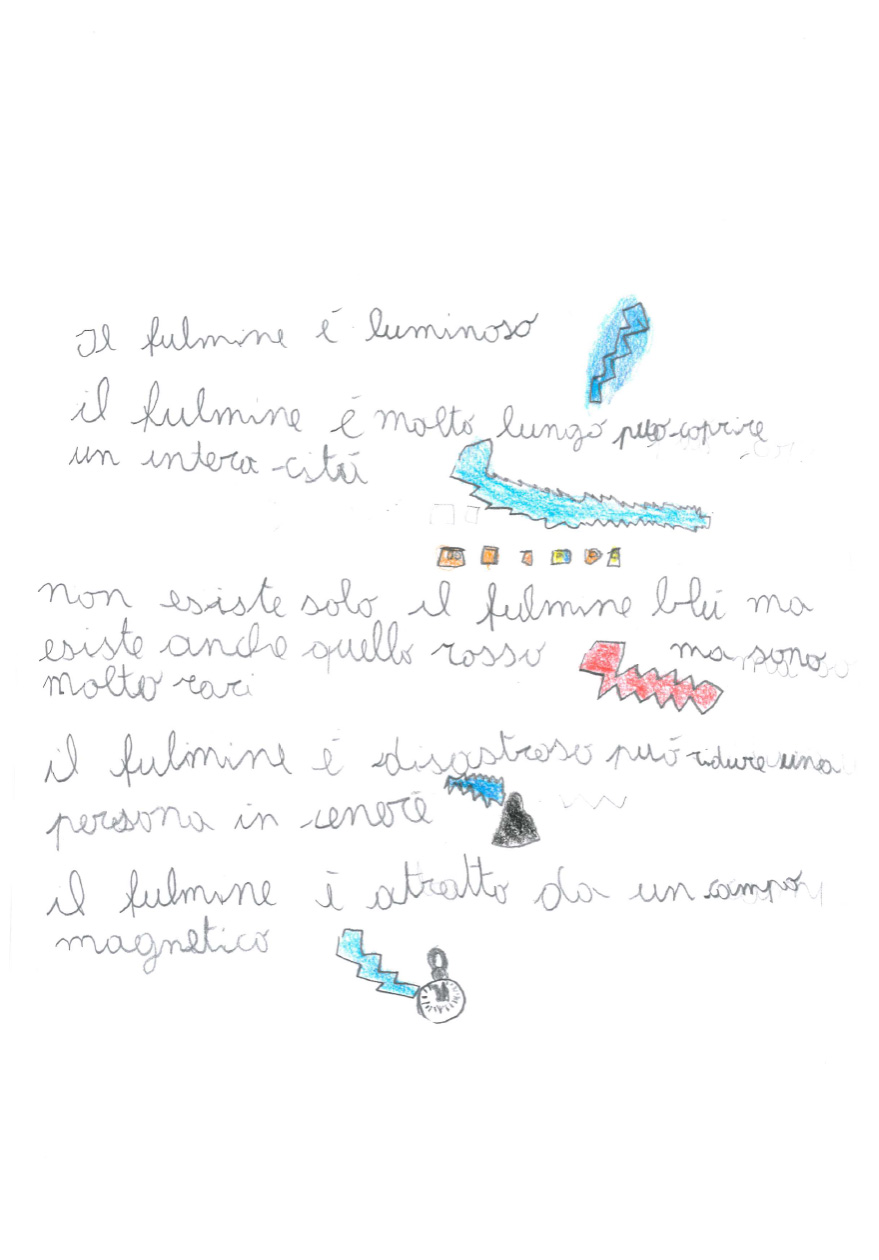 Il fulmine é luminoso
il fulmine é molto lungo può coprire
un intera cittá
non esiste solo il fulmine blú ma
esiste anche quello rosso ma sono
molto rari
il fulmine é disastroso puó ridure una
persona in cenere
il fulmine é atratto da un campo
magnetico